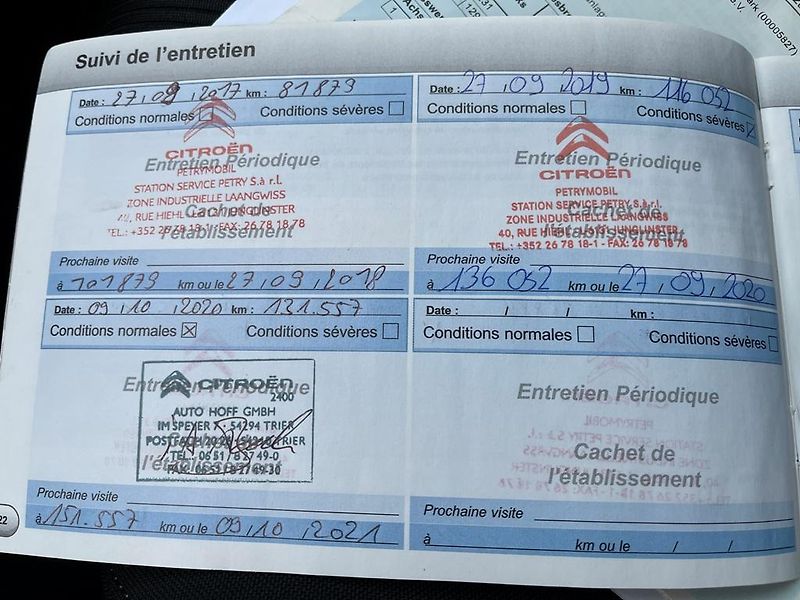 (00005827)
Suivi de l'entretien
Date : 27,09,2017 km : 81 879
Conditions normales Conditions sévères
Entretien Périodique
CITROËN
PETRYMOBIL
STATION SERVICE PETRY S.à r.l.
ZONE INDUSTRIELLE LAANGWISS
Cachet de
TEL.: +352 26 78 18-1 - FAX: 26 78 18 78
l'établissement
Prochaine visite
à 101 879 km ou le 27,09,2018
Date : 27,09 2019 km : 116 052
Conditions normales Conditions sévères
Entretien Périodique
CITROËN
PETRYMOBIL
STATION SERVICE PETRY S.à r.l.
ZONE INDUSTRIELLE LAANGWISS
Cachet de
l'établissement
TEL.: +352 26 78 18-1 - FAX: 26 78 18 78
Prochaine visite
à 136 052 km ou le 27,09,2020
Date : 09,10,2020 km : 131.557
Conditions normales Conditions sévères
Entretien Périodique
CITROËN
2400
AUTO HOFF GMBH
IM SPEYER 7 · 54294 TRIER
TEL.: 06 51 / 8 27 49-0
Prochaine visite
à 151.557 km ou le 09,10,2021
Date : / / km :
Conditions normales Conditions sévères
Entretien Périodique
Cachet de
l'établissement
Prochaine visite
à km ou le / /
22